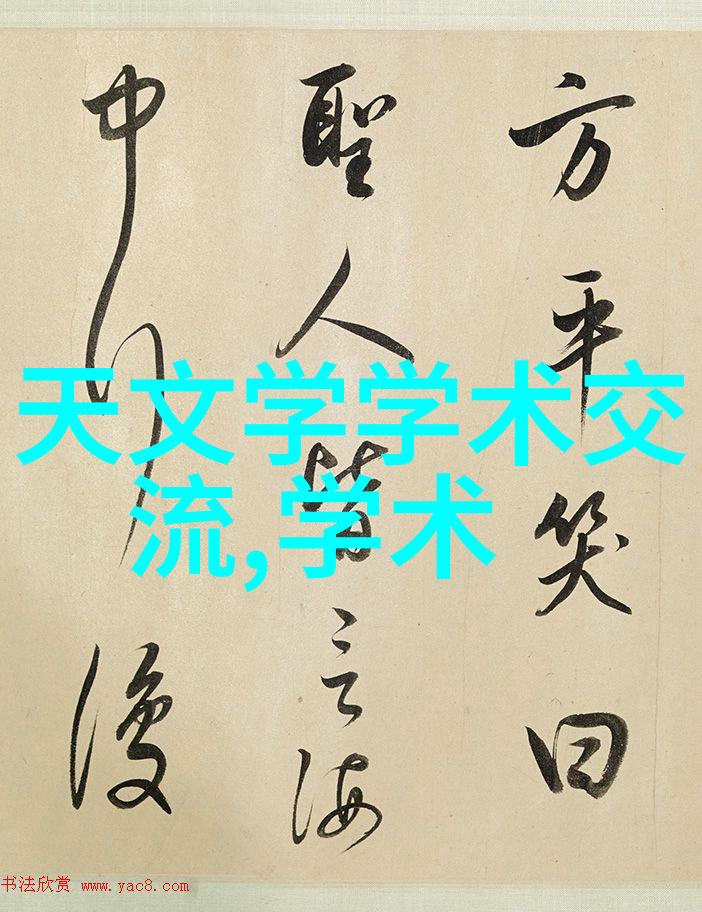 方平笑曰
聖人皆言海
中行復
天文学学术交
流,学术
书法欣赏 www.yac8.com